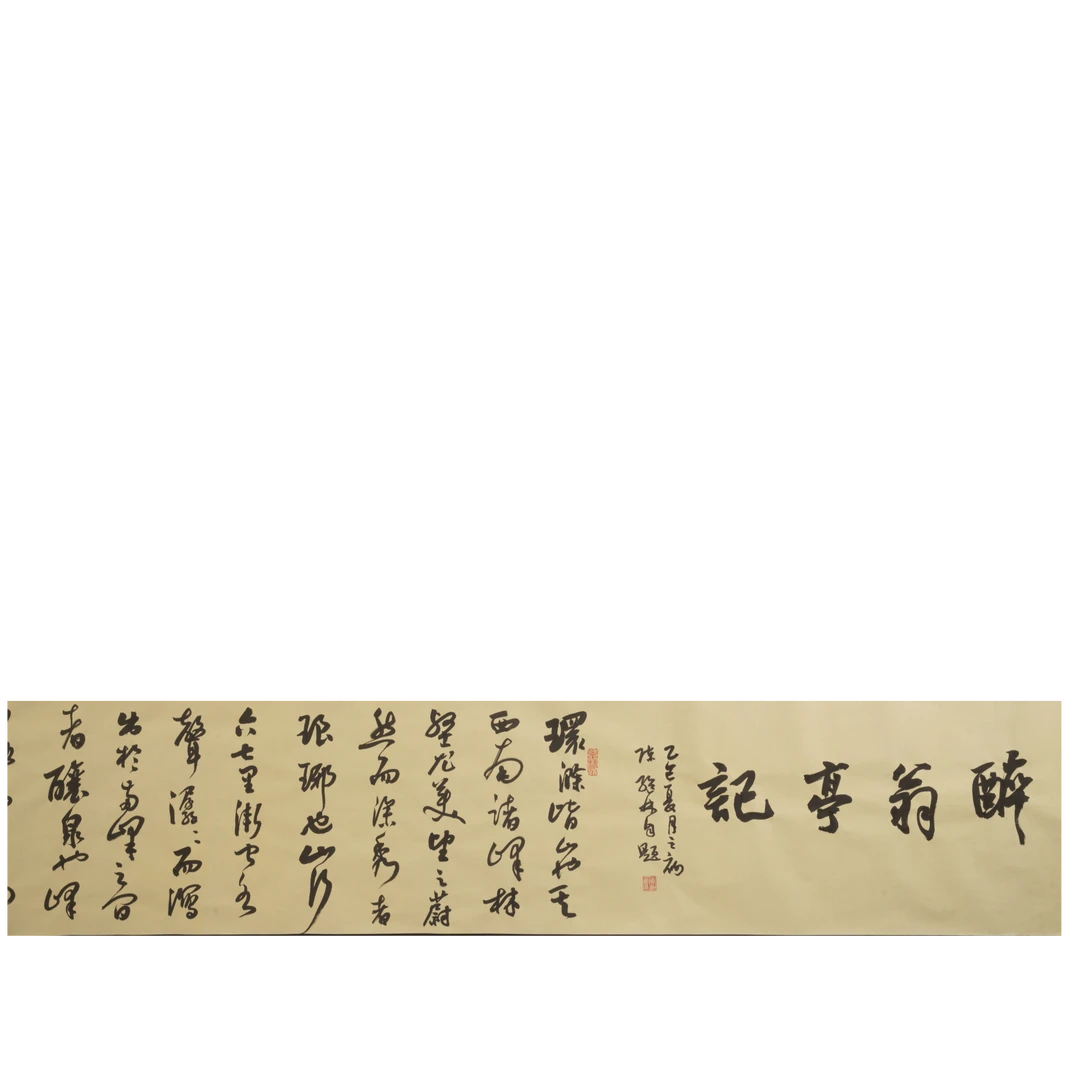 醉翁亭記
乙巳夏月之初
自題
環滁皆山也其
西南諸峰林
壑尤美望之蔚
然而深秀者
琅琊也山行
六七里漸聞水
聲潺々而瀉
出於兩峰之間
者釀泉也峰